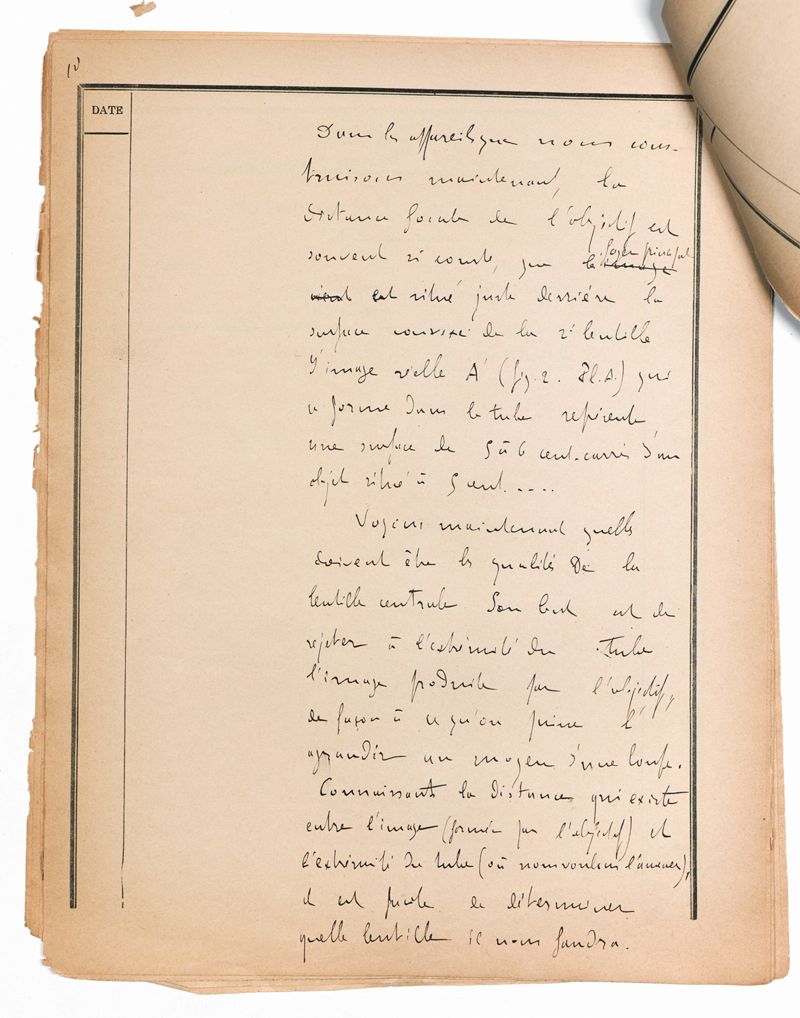 10
DATE
Dans les appareils que nous cons-
truisons maintenant, la
distance focale de l'objectif est
souvent si courte, que le image foyer principal
vient est situé juste derrière la
surface convexe de la 2e lentille
L'image réelle A' (fig. 2. Pl. A.) qui
se forme dans le tube représente
une surface de 5 à 6 cent-carrés d'un
objet situé à 5 cent....
Voyons maintenant quelles
doivent être les qualités de la
lentille centrale Son but est de
rejeter à l'extrémité du tube
l'image produite par l'objectif,
de façon à ce qu'on puisse l'
agrandir au moyen d'une loupe.
Connaissant la distance qui existe
entre l'image (formée par l'objectif) et
l'extrémité du tube (où nous voulons l'amener),
il est facile de déterminer
quelle lentille il nous faudra.